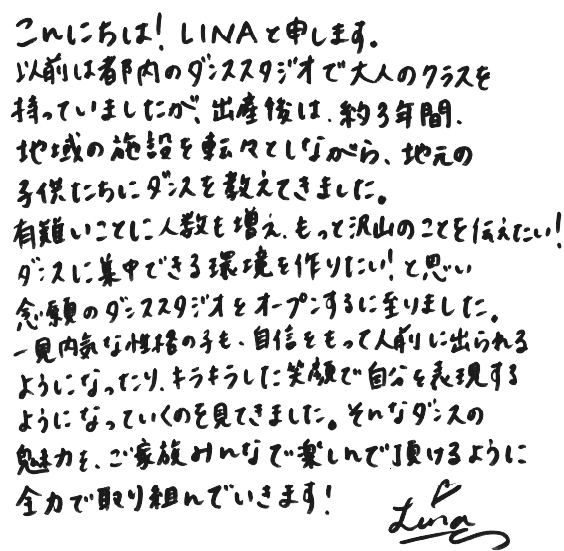 こんにちは! LINAと申します。
以前は都内のダンススタジオで大人のクラスを
持っていましたが、出産後は、約3年間、
地域の施設を転々としながら、地元の
子供たちにダンスを教えてきました。
有難いことに人数も増え、もっと沢山のことを伝えたい!
ダンスに集中できる環境を作りたい!と思い
念願のダンススタジオをオープンするに至りました。
一見内気な性格の子も、自信をもって人前に出られる
ようになったり、キラキラした笑顔で自分を表現する
ようになっていくのを見てきました。そんなダンスの
魅力を、ご家族みんなで楽しんで頂けるように
全力で取り組んでいきます!
Lina